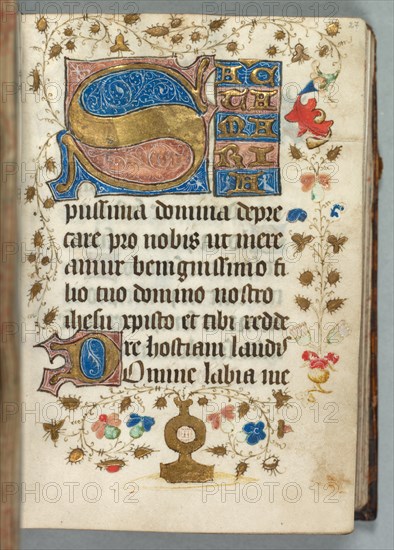 SAC
TA
MA
RI
A
piissima domina depre
care pro nobis ut mere
amur benignissimo fi
lio tuo domino nostro
ihesu xpisto et tibi redde
re hostiam laudis
Domine labia me